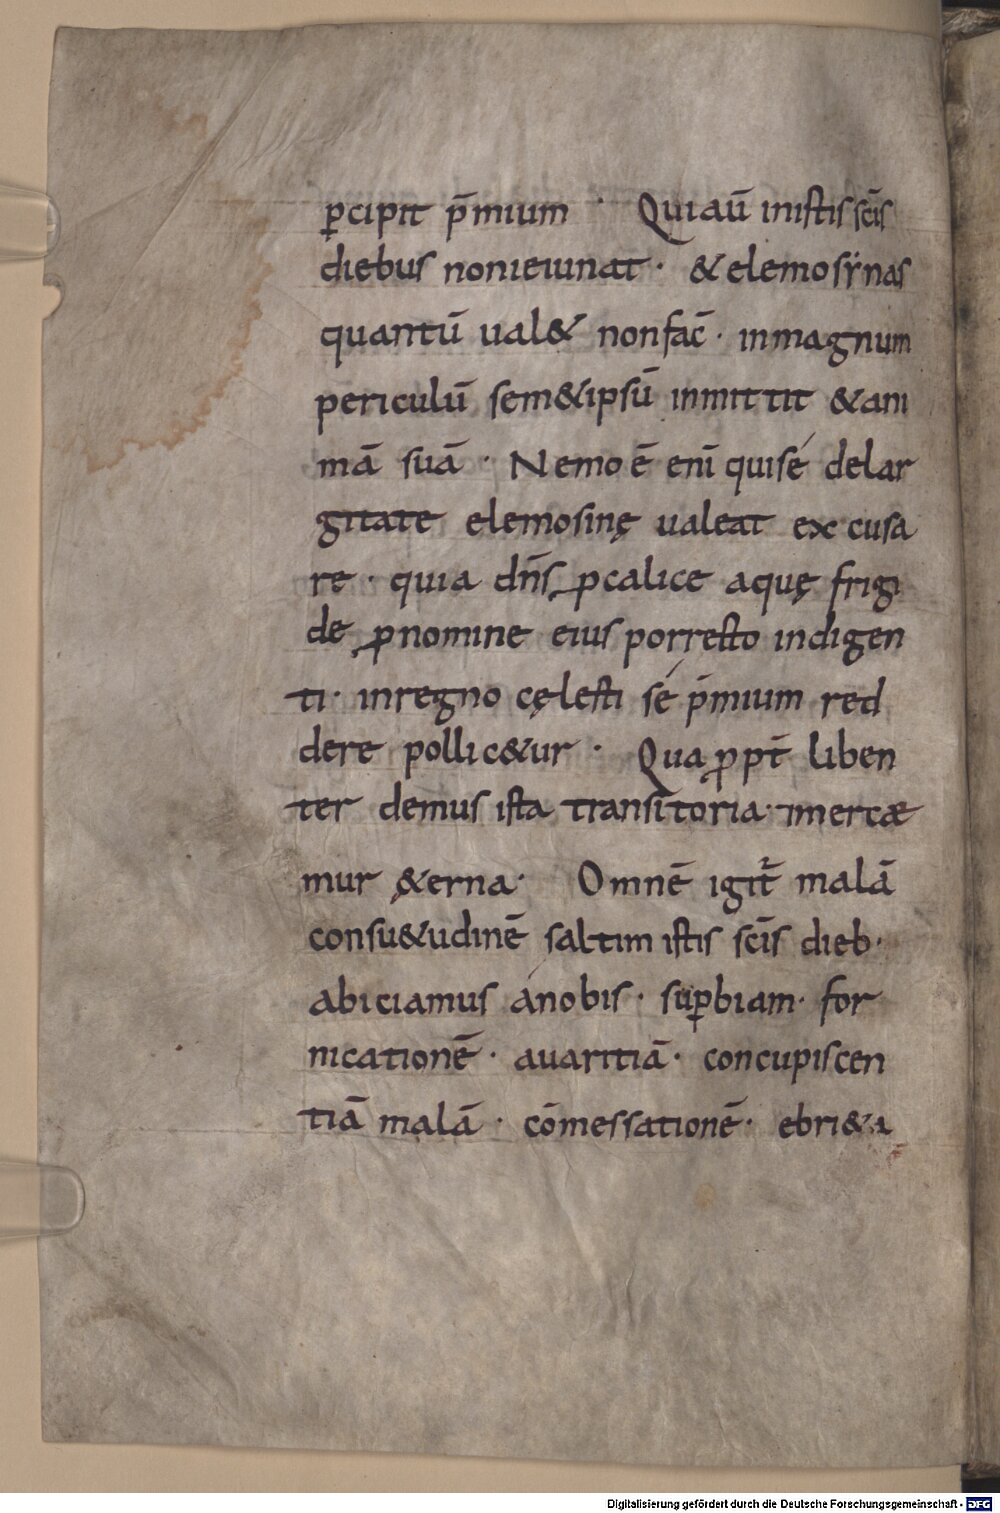 p̱cipit p̄mium · Quiaū inistis sc̄is
diebus nonieiunat · &elemosẏnas
quantū ual& nonfac̄ · inmagnum
periculū sem&ipsū inmittit &ani
mā suā · Nemo ē enī quisé delar
gitate elemosinę ualeat excusa
re · quia dn̄s ꝓcalice aquę frigi
de ꝓnomine eius porrecto indigen
ti · inregno cęlesti sé p̄mium red
dere pollic&ur · Quaꝓpt̄ liben
ter demus ista transitoria · mercæ
mur &erna · Omnē igit̄ malā
consu&udinē saltim istis sc̄is dieb·
abiciamus ánobis · suꝑbiam · for
nicationē · auaritiā · concupiscen
tiā malā · cōmessationē · ebri&a
Digitalisierung gefördert durch die Deutsche Forschungsgemeinschaft - DFG